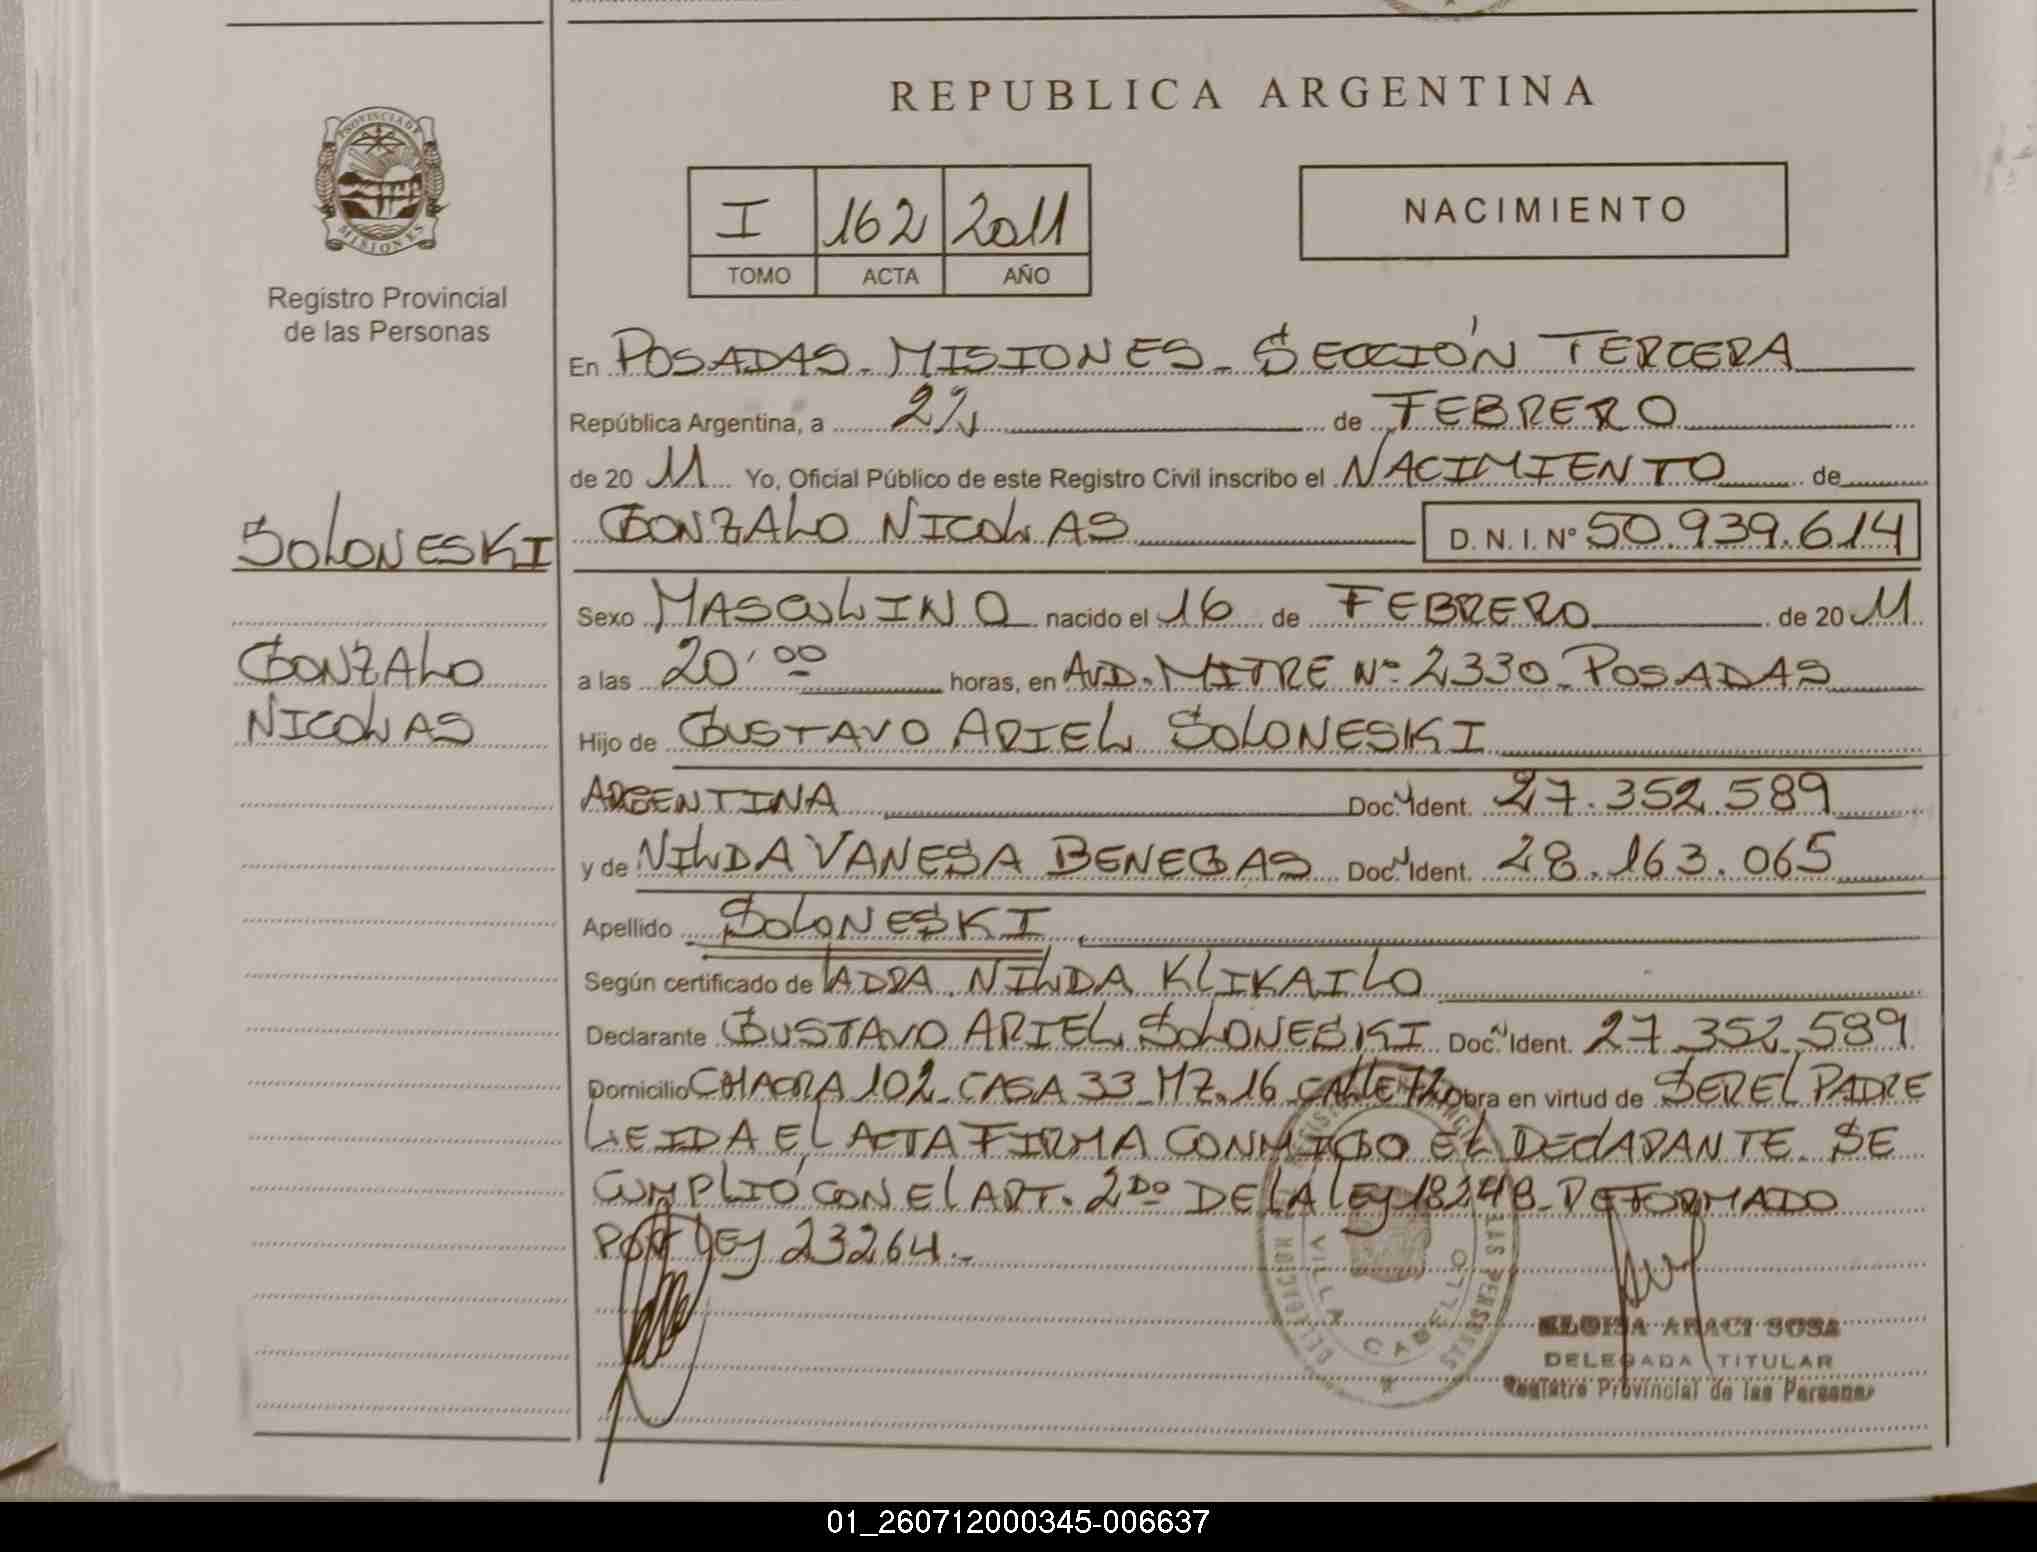 REPUBLICA ARGENTINA
PROVINCIA DE
MISIONES
Registro Provincial
de las Personas
I 162 2011
TOMO ACTA AÑO
NACIMIENTO
En POSADAS - MISIONES - SECCIÓN TERCERA
República Argentina, a de FEBRERO
de 20 11 Yo, Oficial Público de este Registro Civil inscribo el NACIMIENTO de
SOLONESKI
GONZALO NICOLAS D. N. I. Nº 50.939.614
Sexo MASCULINO nacido el 16 de FEBRERO de 20 11
GONZALO
NICOLAS
a las 20'00 horas, en AVD. MITRE Nº 2330 - POSADAS
Hijo de GUSTAVO ARIEL SOLONESKI
ARGENTINA Doc. N Ident. 27.352.589
y de NILDA VANESA BENEGAS Doc. N Ident. 28.163.065
Apellido SOLONESKI
Según certificado de LA DRA. NILDA KLIKAILO
Declarante GUSTAVO ARIEL SOLONESKI Doc. N Ident. 27.352.589
Domicilio CHACRA 102 - CASA 33 - MZ. 16 CALLE 72 Obra en virtud de SER EL PADRE
LEIDA EL ACTA FIRMA CONMIGO EL DECLARANTE. SE
CUMPLIÓ CON EL ART. 2DO DE LA LEY 18248 - REFORMADO
POR LEY 23264.-
DELEGACION VILLA CABELLO
LAS PERSONAS
ELOISA ARACI SOSA
DELEGADA TITULAR
Registro Provincial de las Personas
01_260712000345-006637